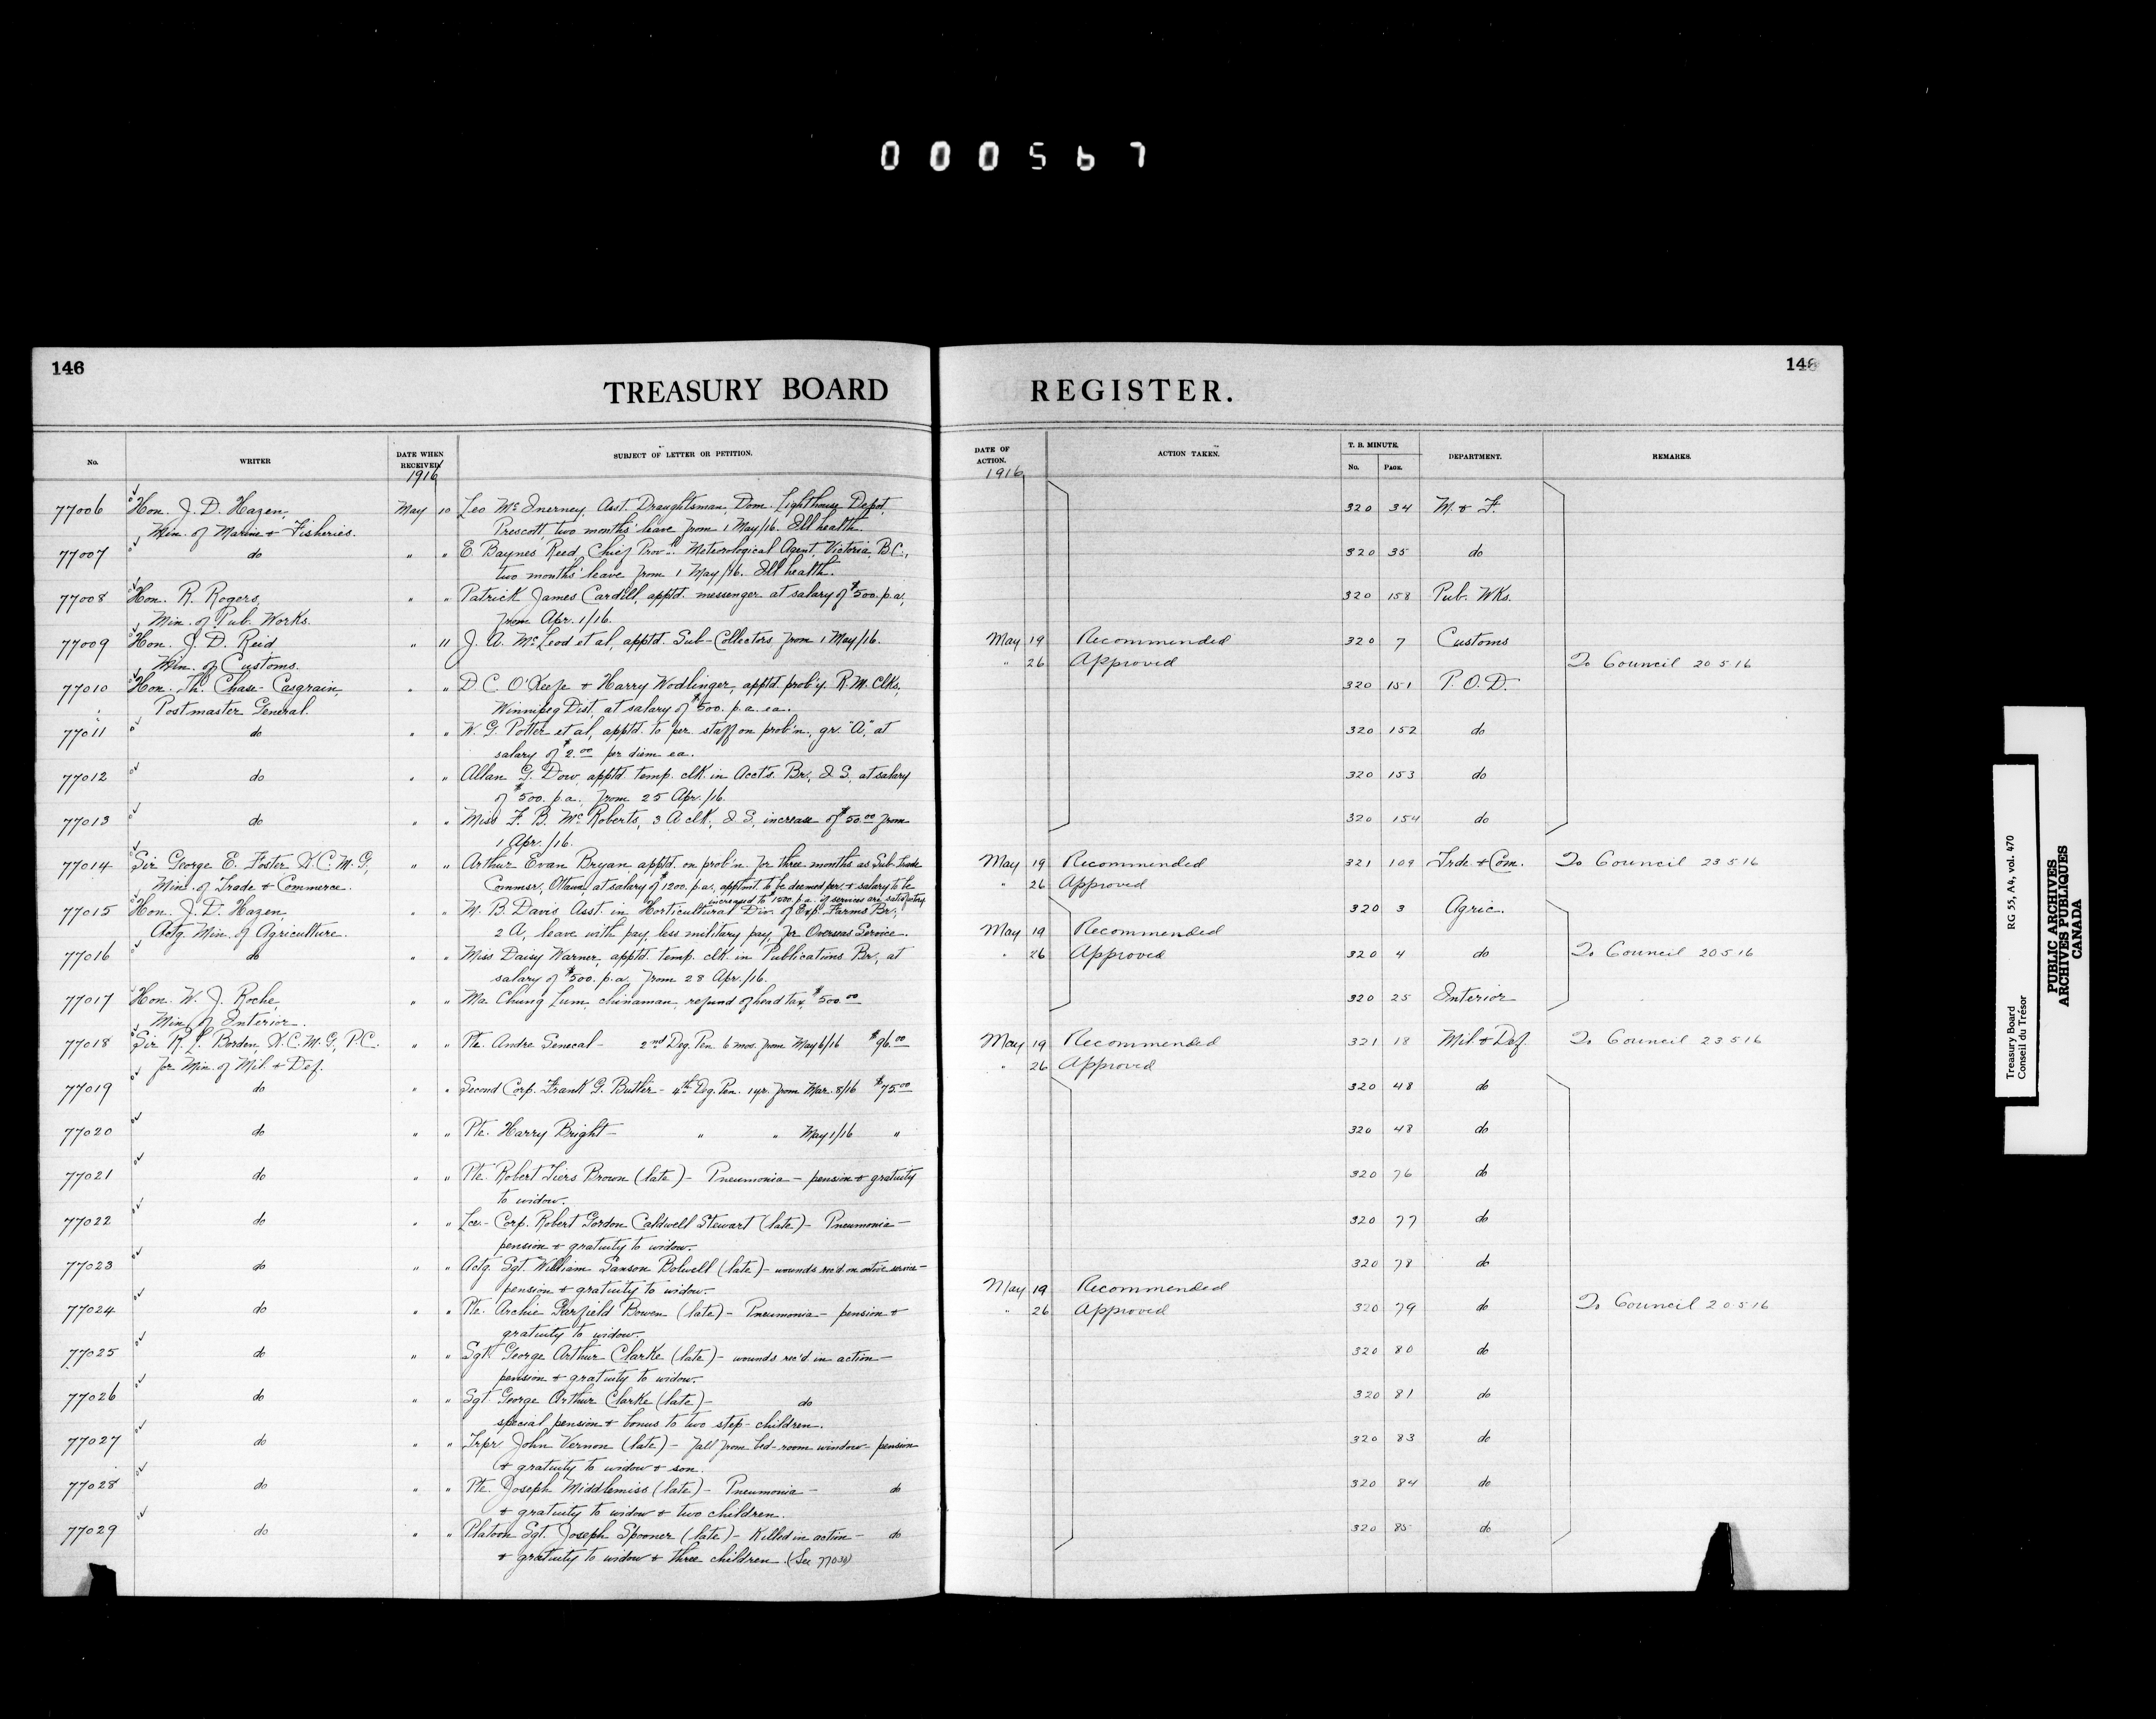 000567
146
TREASURY BOARD
No.
WRITER
DATE WHEN RECEIVED
1916
SUBJECT OF LETTER OR PETITION.
77006 Hon. J. D. Hazen, May 10 Leo McInerney, Asst. Draughtsman, Dom. Lighthouse Depot,
Min. of Marine & Fisheries. Prescott, two months' leave from 1 May/16. Ill health.
77007 do " " E. Baynes Reed, Chief Prov'l. Meteorological Agent, Victoria, B.C.,
two months' leave from 1 May/16. Ill health.
77008 Hon. R. Rogers, " " Patrick James Cardill, apptd. messenger at salary of $500. p.a,
Min. of Pub. Works. from Apr. 1/16.
77009 Hon. J. D. Reid, " 11 J. A. McLeod et al, apptd. Sub-Collectors from 1 May/16.
Min. of Customs.
77010 Hon. Th. Chase-Casgrain, " " D. C. O'Keefe & Harry Wodlinger, apptd. prob'y. R.M. Clks,
Postmaster General. Winnipeg Dist. at salary of $500. p.a. ea.
77011 do " " W. G. Potter et al, apptd. to per staff on prob'n., gr. "A", at
salary of $2.00 per diem ea.
77012 do " " Allan G. Dow, apptd. temp. clk. in Acct's. Br., I. S., at salary
of $500. p.a., from 25 Apr./16.
77013 do " " Miss F. B. McRoberts, 3 A clk., I. S., increase of $50.00 from
1 Apr./16.
77014 Sir George E. Foster K.C.M.G, " " Arthur Evan Bryan, apptd. on prob'n. for three months as Sub-Trade
Min. of Trade & Commerce. Commsr, Ottawa, at salary of $1200. p.a., apptmt. to be deemed per. & salary to be
increased to $1500. p.a. if services are satisfactory
77015 Hon. J. D. Hazen, " " M. B. Davis Asst. in Horticultural Div. of Exp. Farms Br.,
Actg. Min. of Agriculture. 2 A, leave with pay, less military pay, for Overseas Service.
77016 do " " Miss Daisy Warner, apptd. temp. clk. in Publications Br., at
salary of $500. p.a, from 28 Apr./16.
77017 Hon. W. J. Roche, " " Ma Chung Lum, chinaman, refund of head tax, $500.00
Min. of Interior.
77018 Sir R. L. Borden, K.C.M.G, P.C. " " Pte. Andre Senecal - 2nd Deg. Pen. 6 mos. from May 6/16 $96.00
for Min. of Mil. & Def.
77019 do " " Second Corp. Frank G. Butler - 4th Deg. Pen. 1yr. from Mar. 8/16 $75.00
77020 do " " Pte. Harry Bright - " " May 1/16 "
77021 do " " Pte. Robert Tiers Brown (late) - Pneumonia - pension & gratuity
to widow.
77022 do " " Lce-Corp. Robert Gordon Caldwell Stewart (late) - Pneumonia -
pension & gratuity to widow.
77023 do " " Actg. Sgt. William Sanson Bolwell (late) - wounds rec'd on active service -
pension & gratuity to widow.
77024 do " " Pte. Archie Garfield Bowen (late) - Pneumonia - pension &
gratuity to widow.
77025 do " " Sgt. George Arthur Clarke (late) - wounds rec'd in action -
pension & gratuity to widow.
77026 do " " Sgt. George Arthur Clarke (late) - do
special pension & bonus to two step-children.
77027 do " " Trpr. John Vernon (late) - fall from bed-room window - pension
& gratuity to widow & son.
77028 do " " Pte. Joseph Middlemiss (late) - Pneumonia - do
& gratuity to widow & two children.
77029 do " " Platoon Sgt. Joseph Spooner (late) - Killed in action - do
& gratuity to widow & three children. (See 77030)
146
REGISTER.
DATE OF ACTION.
1916
ACTION TAKEN.
T. B. MINUTE.
No. PAGE.
DEPARTMENT.
REMARKS.
320 34 M. & F.
320 35 do
320 158 Pub. Wks.
May 19 Recommended 320 7 Customs
" 26 Approved To Council 20 5 16
320 151 P. O. D.
320 152 do
320 153 do
320 154 do
May 19 Recommended 321 109 Trde. & Com. To Council 23 5 16
" 26 Approved
320 3 Agric.
May 19 Recommended
" 26 Approved 320 4 do To Council 20 5 16
320 25 Interior
May 19 Recommended 321 18 Mil. & Def. To Council 23 5 16
" 26 Approved
320 48 do
320 48 do
320 76 do
320 77 do
320 78 do
May 19 Recommended
" 26 Approved 320 79 do To Council 20 5 16
320 80 do
320 81 do
320 83 do
320 84 do
320 85 do
Treasury Board RG 55, A4, vol. 470
Conseil du Trésor
PUBLIC ARCHIVES
ARCHIVES PUBLIQUES
CANADA